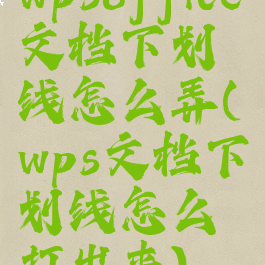 wpsoffice
文档下划
线怎么弄(
wps文档下
划线怎么
打出来)